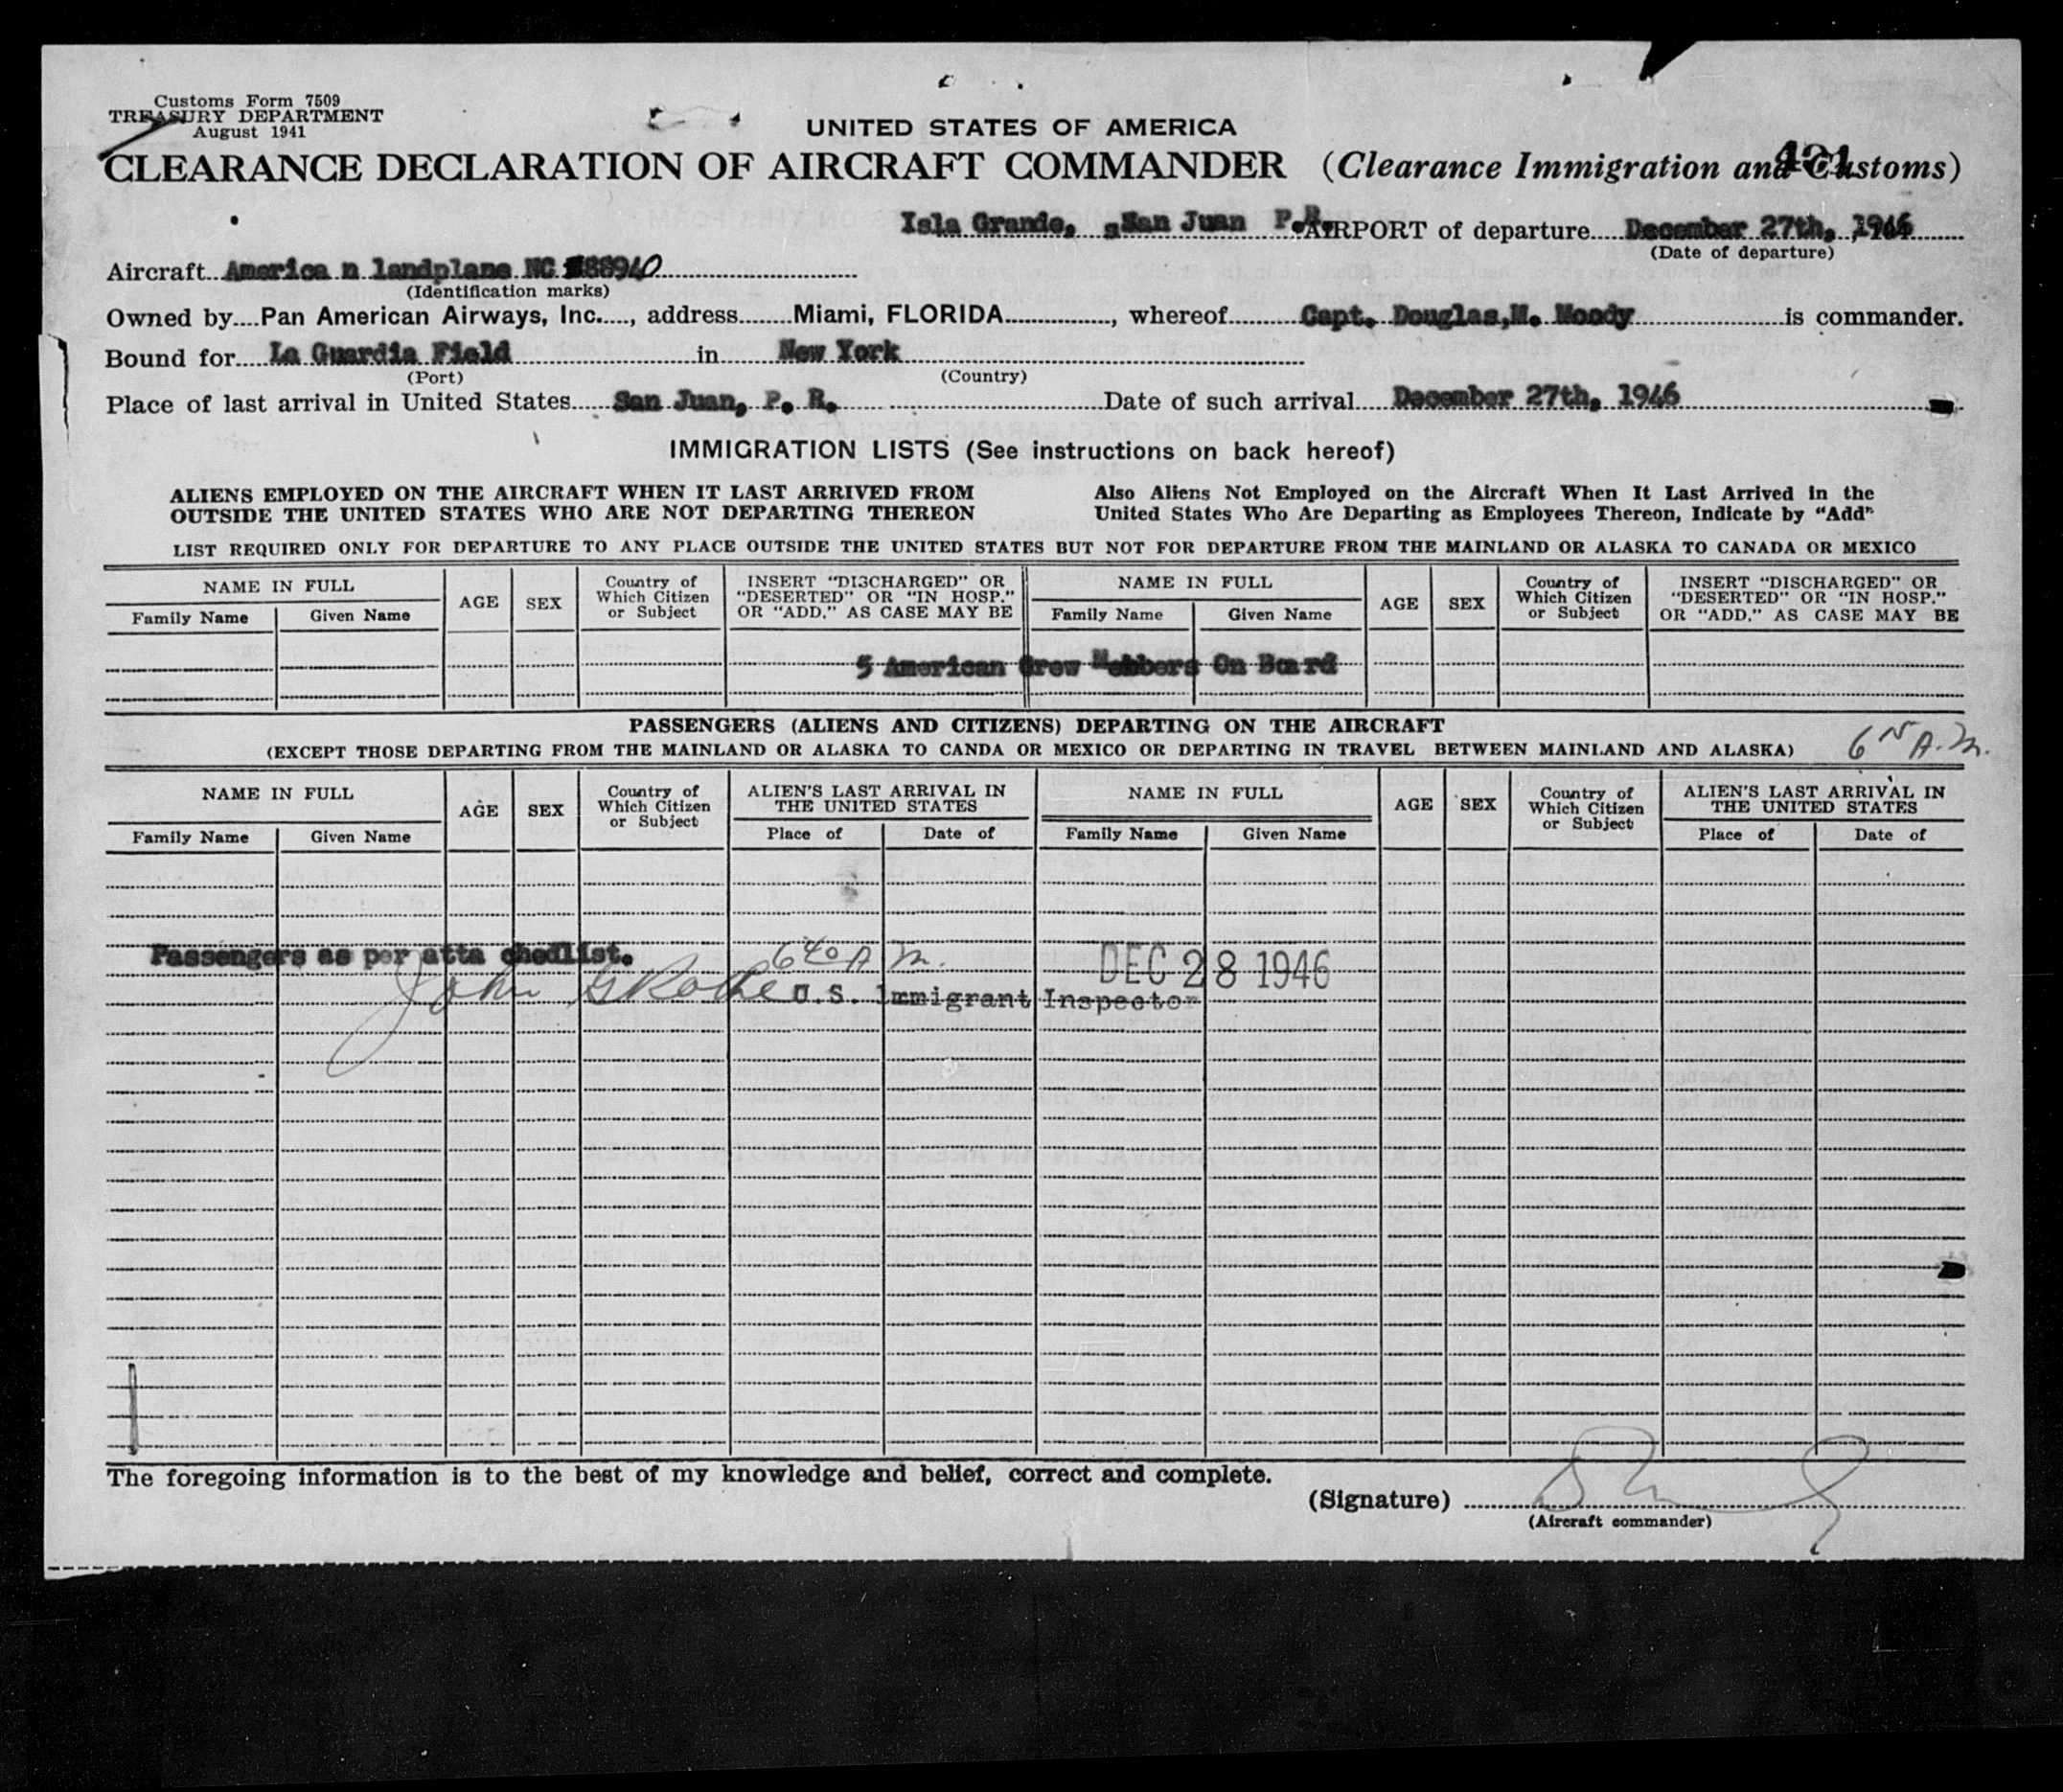 Customs Form 7509
TREASURY DEPARTMENT
August 1941
UNITED STATES OF AMERICA
CLEARANCE DECLARATION OF AIRCRAFT COMMANDER (Clearance Immigration and Customs)
421
Isla Grande, San Juan P.R. AIRPORT of departure December 27th, 1946
(Date of departure)
Aircraft America n landplane NC 88940
(Identification marks)
Owned by Pan American Airways, Inc., address Miami, FLORIDA, whereof Capt. Douglas,M. Moody is commander.
Bound for La Guardia Field in New York
(Port) (Country)
Place of last arrival in United States San Juan, P. R. Date of such arrival December 27th, 1946
IMMIGRATION LISTS (See instructions on back hereof)
ALIENS EMPLOYED ON THE AIRCRAFT WHEN IT LAST ARRIVED FROM
OUTSIDE THE UNITED STATES WHO ARE NOT DEPARTING THEREON
Also Aliens Not Employed on the Aircraft When It Last Arrived in the
United States Who Are Departing as Employees Thereon, Indicate by "Add"
LIST REQUIRED ONLY FOR DEPARTURE TO ANY PLACE OUTSIDE THE UNITED STATES BUT NOT FOR DEPARTURE FROM THE MAINLAND OR ALASKA TO CANADA OR MEXICO
NAME IN FULL
Family Name Given Name
AGE
SEX
Country of
Which Citizen
or Subject
INSERT "DISCHARGED" OR
"DESERTED" OR "IN HOSP."
OR "ADD." AS CASE MAY BE
NAME IN FULL
Family Name Given Name
AGE
SEX
Country of
Which Citizen
or Subject
INSERT "DISCHARGED" OR
"DESERTED" OR "IN HOSP."
OR "ADD." AS CASE MAY BE
5 American Crew Members On Board
PASSENGERS (ALIENS AND CITIZENS) DEPARTING ON THE AIRCRAFT
(EXCEPT THOSE DEPARTING FROM THE MAINLAND OR ALASKA TO CANDA OR MEXICO OR DEPARTING IN TRAVEL BETWEEN MAINLAND AND ALASKA)
A.M.
NAME IN FULL
Family Name Given Name
AGE
SEX
Country of
Which Citizen
or Subject
ALIEN'S LAST ARRIVAL IN
THE UNITED STATES
Place of Date of
NAME IN FULL
Family Name Given Name
AGE
SEX
Country of
Which Citizen
or Subject
ALIEN'S LAST ARRIVAL IN
THE UNITED STATES
Place of Date of
Passengers as per atta chedlist.
640 A M.
DEC 28 1946
John U.S. Immigrant Inspector
The foregoing information is to the best of my knowledge and belief, correct and complete.
(Signature)
(Aircraft commander)